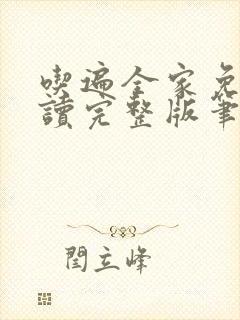 喫遍全家免
讀完整版筆
閆立峰